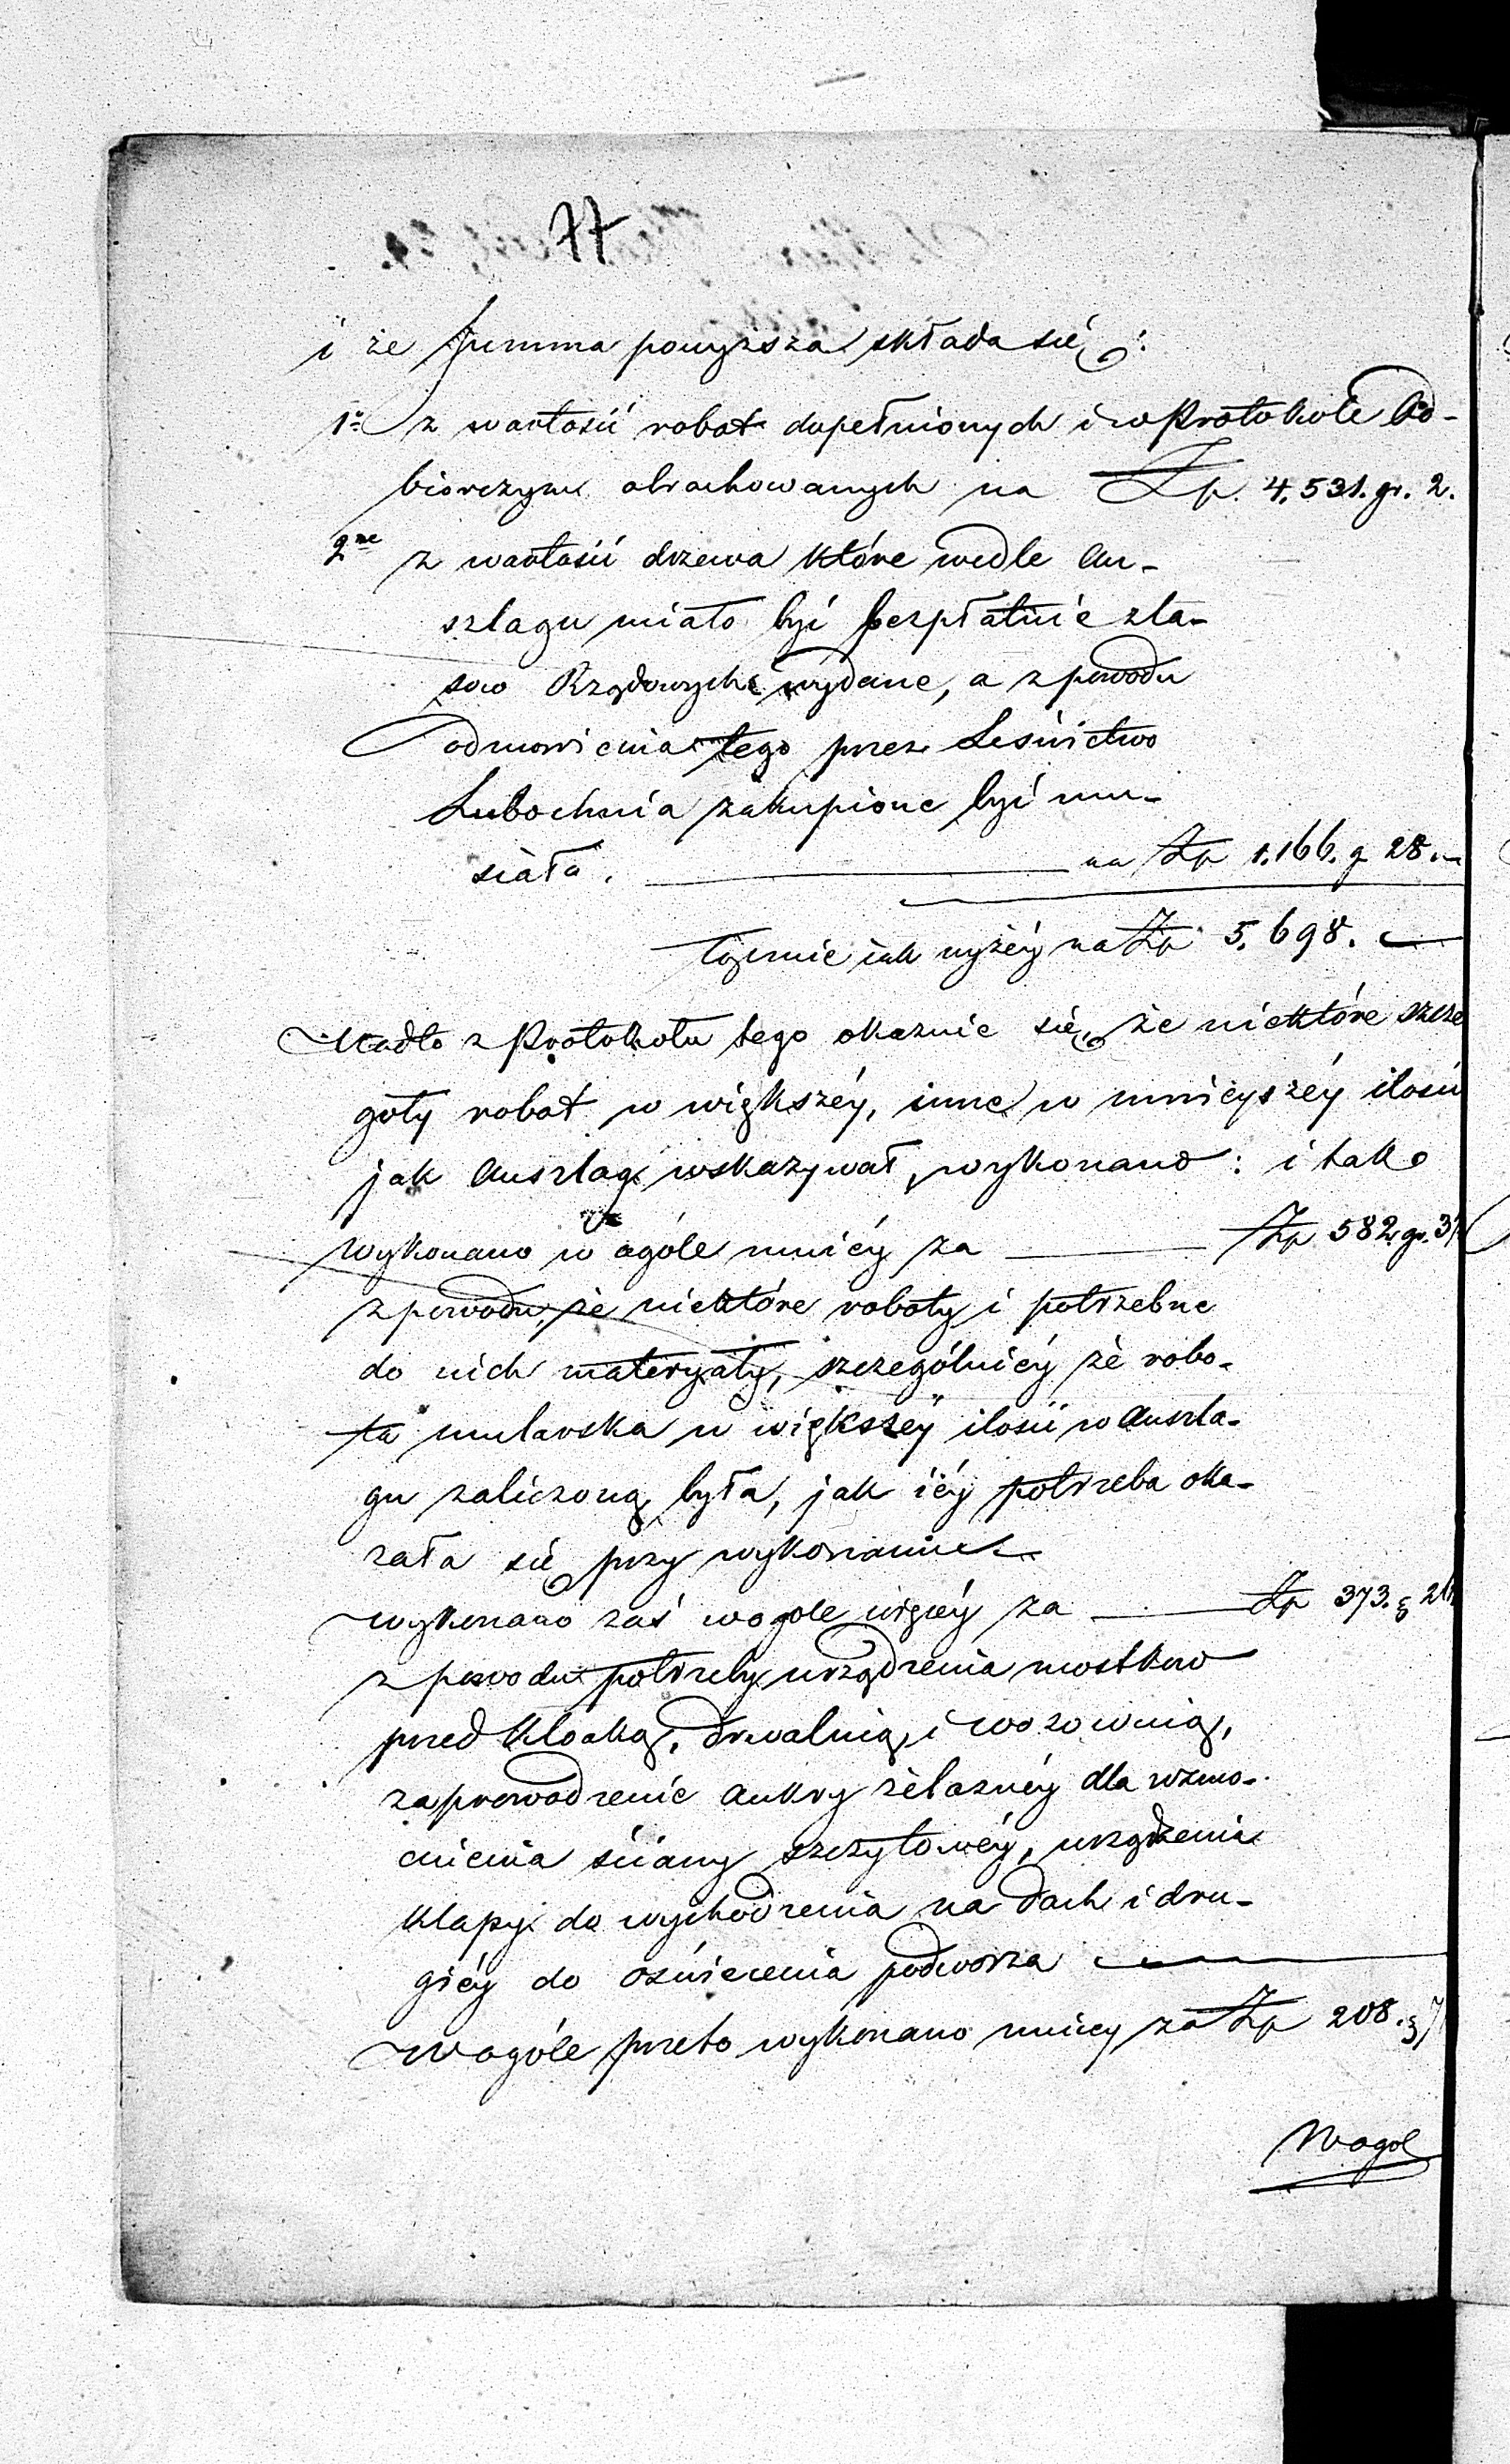 77
i że summa powyższa składa się:
1° z wartości robot dopełnionych i w Protokole Od-
biorczym obrachowanych na Zp. 4,531. gr. 2.
2ne z wartości drzewa które wedle An-
szlagu miało być bezpłatnie z la-
sow Rządowych wydane, a z powodu
odmowienia tego przez Leśnictwo
Lubochnia zakupione być mu-
siało. na Zp 1.166. g 28.
Łącznie iak wyżéy na Zp 5,698.
Nadto z Protokołu tego okazuie się, że niektóre szcze
goły robot w większéy, inne w mnieyszéy ilości
jak Anszlag wskazywał, wykonano: i tak
wykonano w ogóle mniéy za Zp 582 gr. 3
z powodu, że niektóre roboty i potrzebne
do nich materyały, szczególniéy że robo-
ta mularska w większéy ilości w Anszla-
gu zaliczoną była, jak iéy potrzeba oka-
zała się przy wykonaniu
wykonano zaś wogole więcéy za Zp 373. g
z powodu potrzeby urządzenia mostkow
przed kloaką, drwalnią, i wozownią,
zaprowadzenie ankry żelaznéy dla wzmo-
cnienia ściany szczytowéy, urządzenia
klapy do wychodzenia na dach i dru-
giéy do oświecenia podworza
Wogóle przeto wykonano mniey za Zp 208. g 7
Wogol